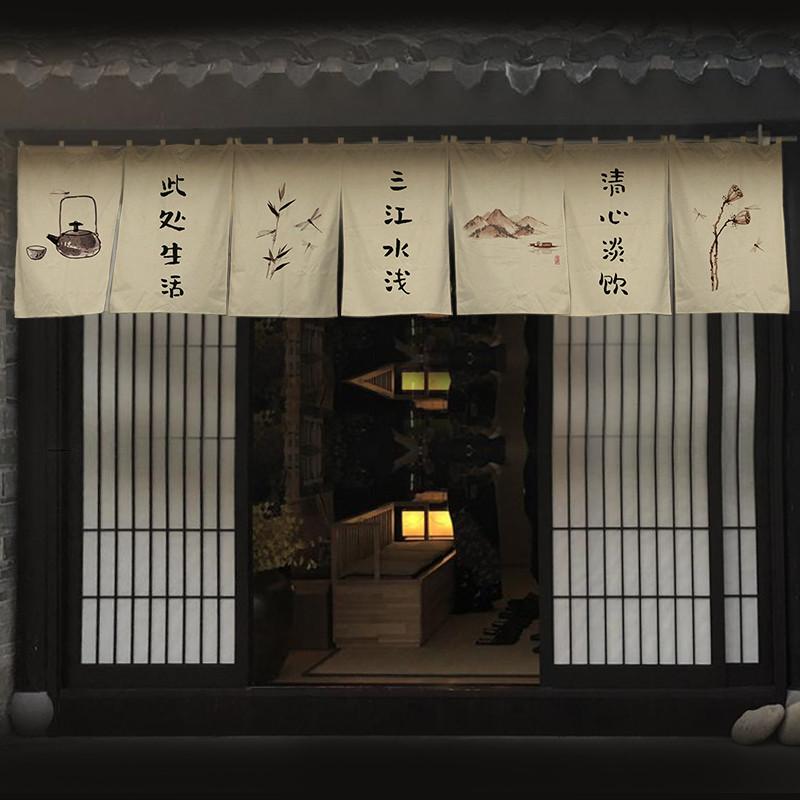 此处生活
三江水浅
清心淡飲